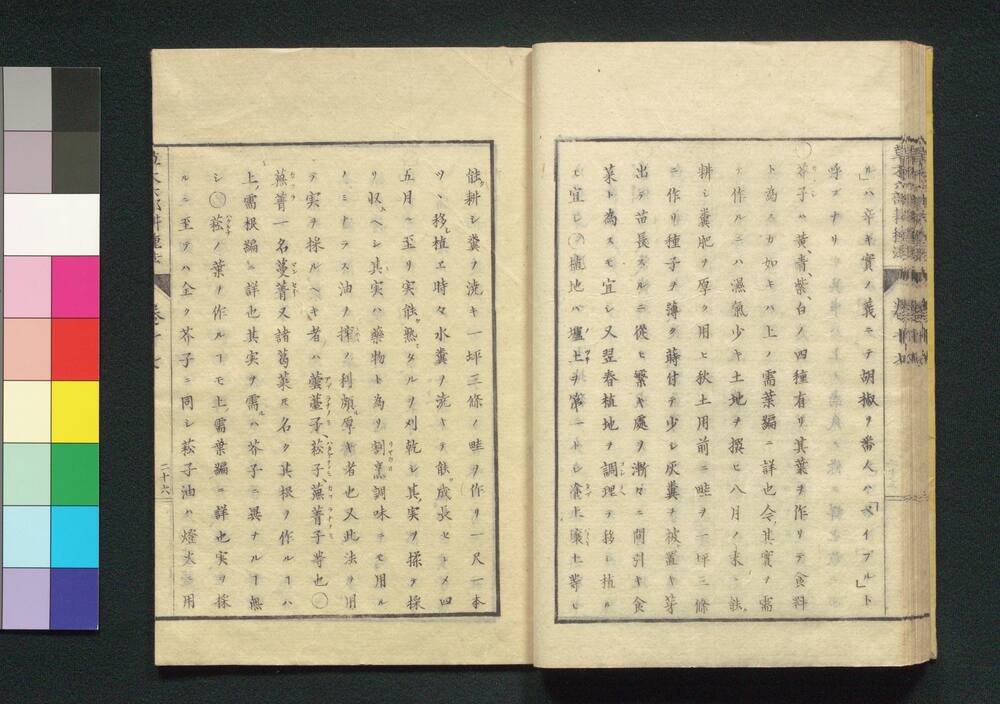 ル」ハ辛キ實ノ義ニテ胡椒ヲ番人ハ「ペイブル」ト
呼ズナリ
芥子ハ黄、青、紫、白ノ四種有リ其葉ヲ作リテ食料
ト為スカ如キハ上ノ需葉編ニ詳也今其實ヲ需
テ作ルニハ濕氣少キ土地ヲ撰ヒ八月ノ末ニ能
耕シ糞肥ヲ厚ク用ヒ秋土用前ニ畦ヲ一坪三條
ニ作リ種子ヲ薄ク蒔付テ少シ灰糞ヲ被置キ芽
出テ苗長スルニ從ヒ繁キ處ヲ漸々ニ間引キ食
菜ト為スモ宜シ又翌春植地ヲ調理テ移シ植ル
モ宜シ○植地ハ壚土ヲ第一トシ 土壤土等モ
能耕シ糞ヲ澆キ一坪三條ノ畦ヲ作リ一尺一本
ツヽ移植エ時々水糞ヲ澆キテ能成長セシメ四
五月ニ至リ実能熟タルヲ刈乾シ其実ヲ揉テ採
リ収ヘシ其実ハ藥物ト為リ割烹調味ニモ用ル
ノミナラス油ヲ搾ノ利頗厚キ者也又此法ヲ用
テ実ヲ採ルヘキ者ハ蕓薹子、菘子、蕪菁子等也○
蕪菁一名蔓菁又諸葛菜トモ名ク其根ヲ作ルコハ
上、需根編ニ詳也其実ヲ需ルハ芥子ニ異ナルコ無
シ○菘ノ葉ヲ作ルコモ上、需葉編ニ詳也実ヲ採
ルニ至テハ全ク芥子ニ同シ菘子油ハ燈火ニ用
二十六